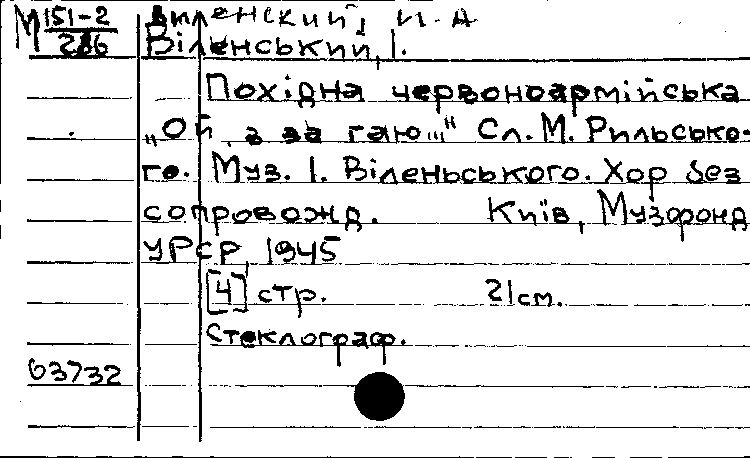 М 151-2 Виленский, И. А
286 Віленський, І.
Похідна червоноармійська
„Ой, з за гаю..." Сл. М. Рильсько-
го. Муз. І. Віленьського. Хор без
сопровожд. Київ, Музфонд
УРСР, 1945
[4] стр. 21см.
Стеклограф.
63732